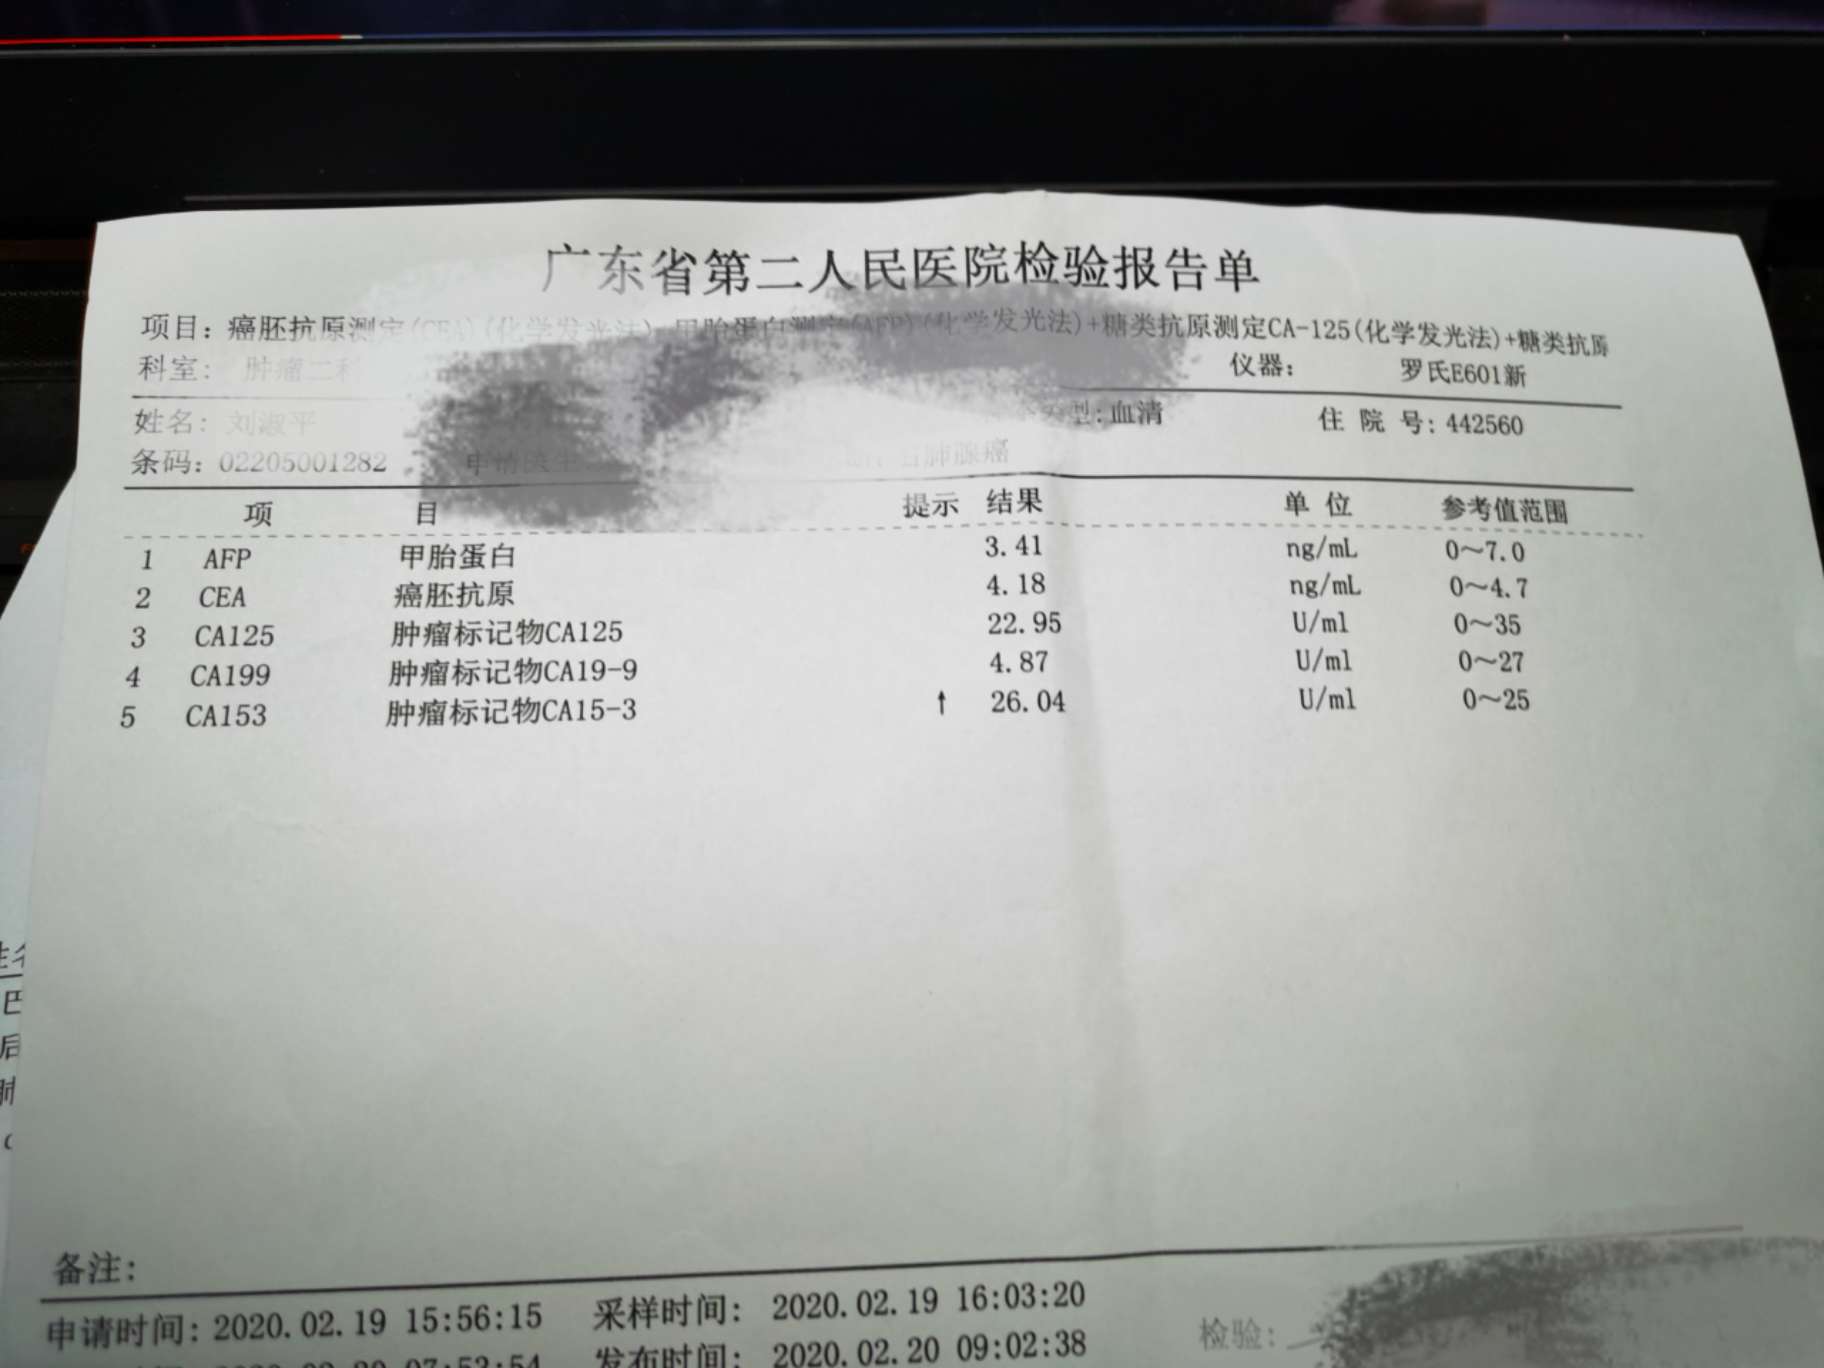 广东省第二人民医院检验报告单
项目：癌胚抗原测定(CEA)(化学发光法)+甲胎蛋白测定(AFP)(化学发光法)+糖类抗原测定CA-125(化学发光法)+糖类抗原
科室： 肿瘤二科 仪器： 罗氏E601新
姓名：刘淑平 型：血清 住 院 号：442560
条码：02205001282 申请医生 右肺腺癌
项 目 提示 结果 单 位 参考值范围
1 AFP 甲胎蛋白 3.41 ng/mL 0～7.0
2 CEA 癌胚抗原 4.18 ng/mL 0～4.7
3 CA125 肿瘤标记物CA125 22.95 U/ml 0～35
4 CA199 肿瘤标记物CA19-9 4.87 U/ml 0～27
5 CA153 肿瘤标记物CA15-3 ↑ 26.04 U/ml 0～25
备注：
申请时间：2020.02.19 15:56:15 采样时间： 2020.02.19 16:03:20 检验：
发布时间： 2020.02.20 09:02:38